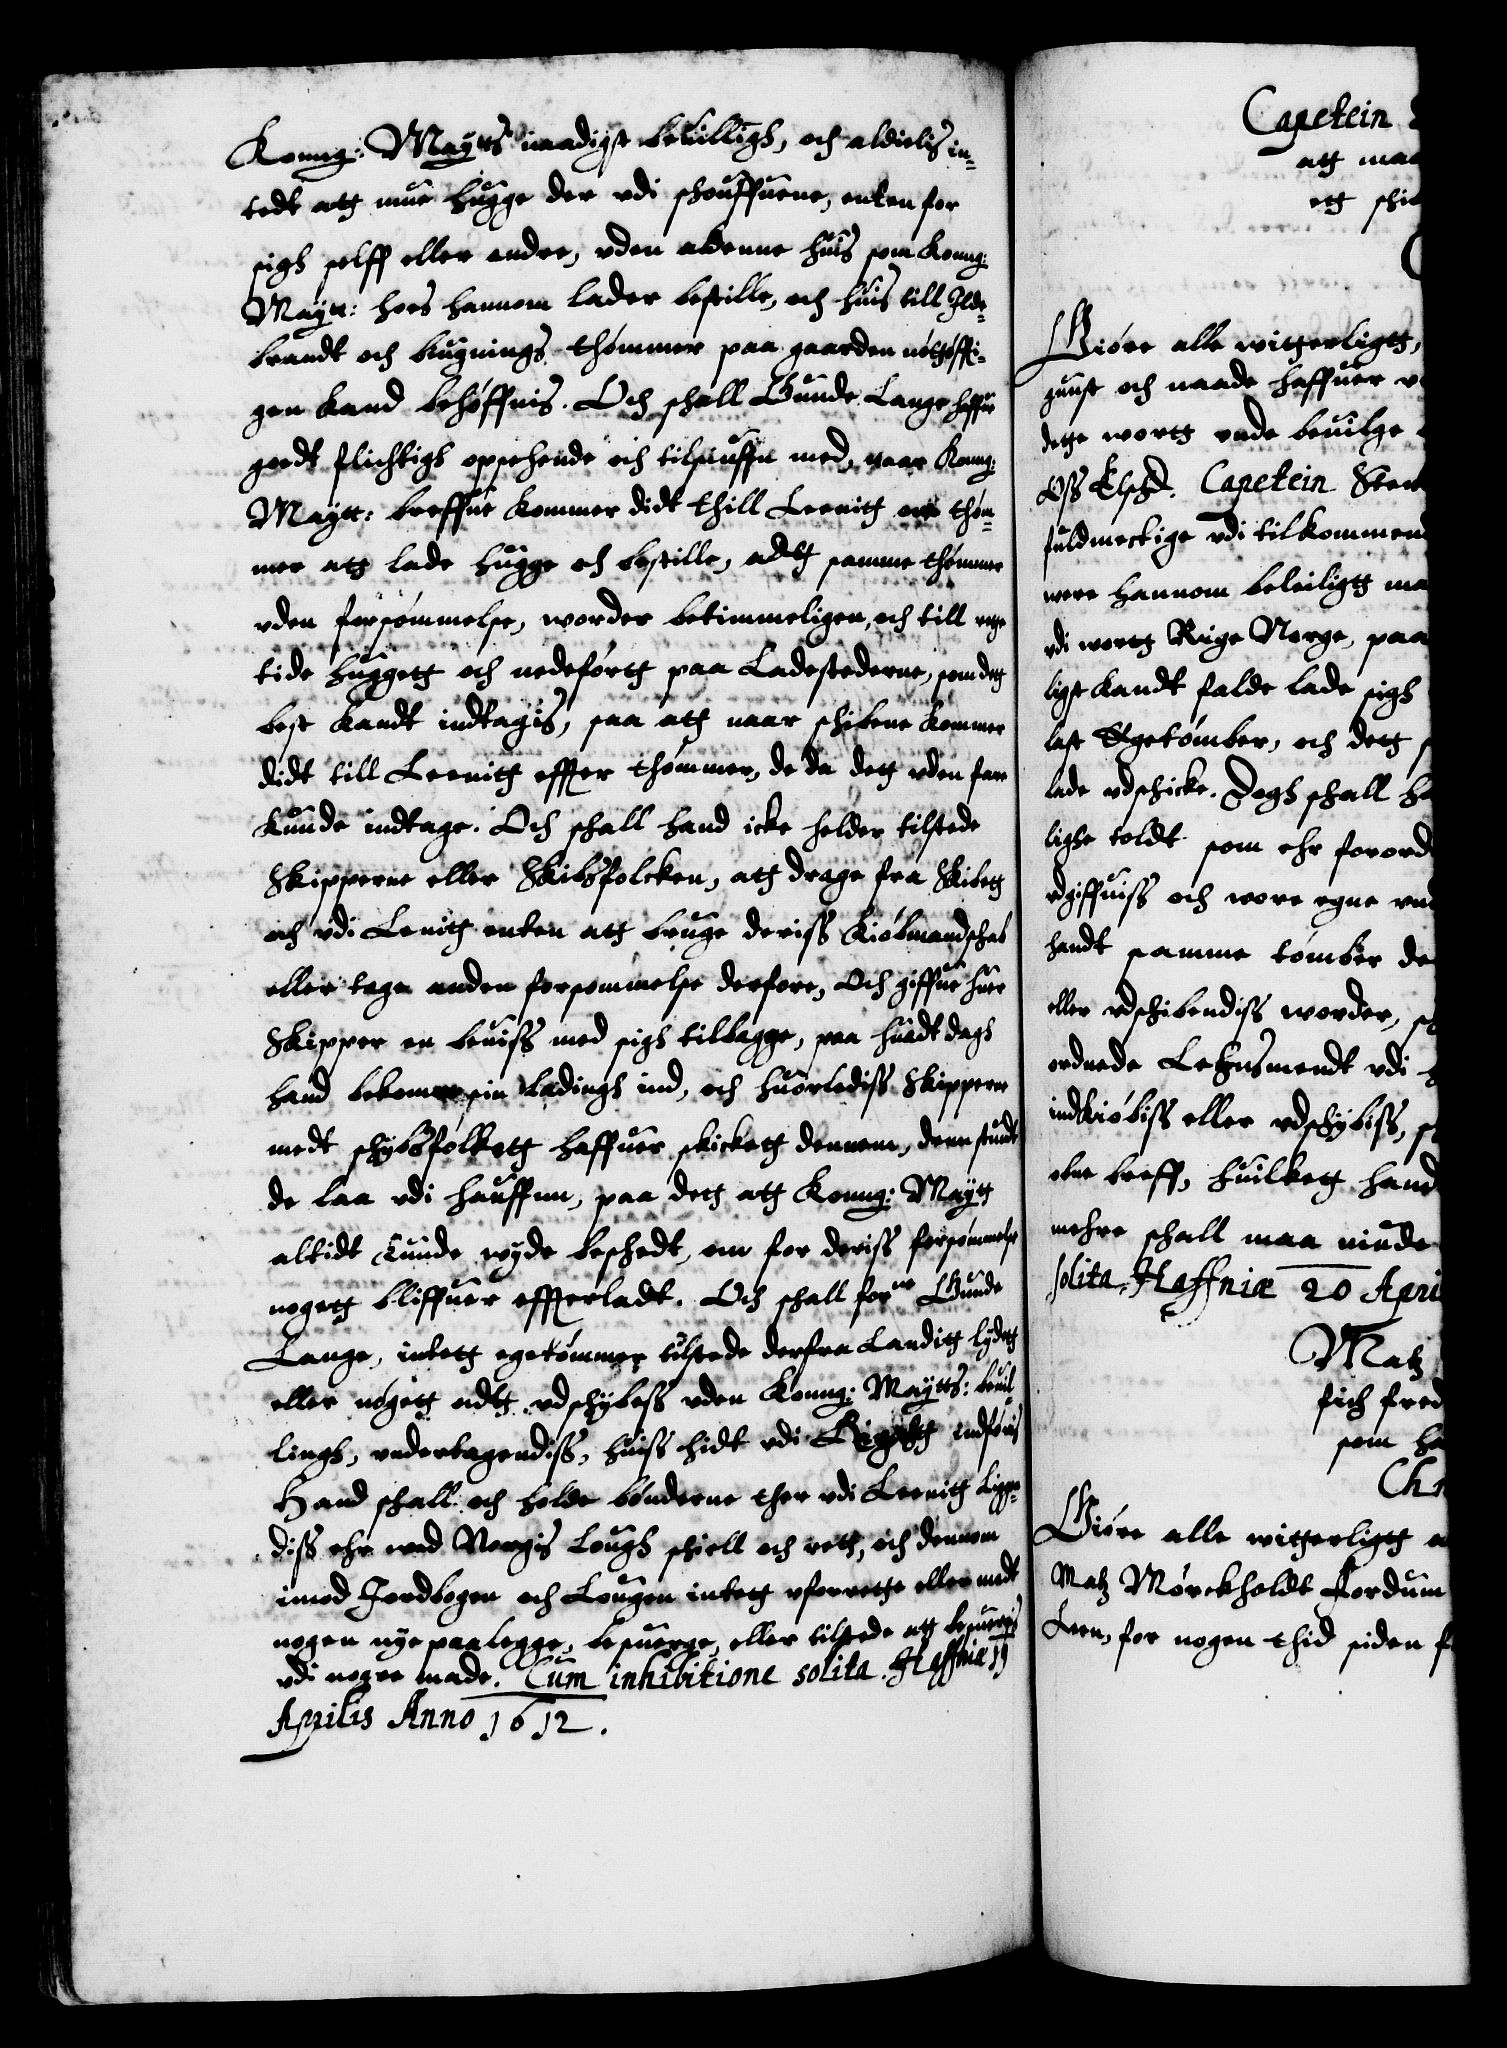 Konng: Maÿtts naadigst beuilligh, och aldielis in-
tedt att mue hugge der vdi skouffuene, enten for
sigh selff eller andre, vden alenne huis som Konng:
Maÿtt: hoes hannom lader bestille, och huis till Ilde-
brandt och bÿgnings thømmer paa gaarden nøttørffti-
gen kand behøffuis. Och schall Gunde Lange haffue
goedt flichtigh opsehende och tilsiuffn med, naar Konng:
Maÿtt: breffue kommer didt thill Leenitt om thøm-
mer att lade hugge och bestille, adtt samme thømmer
vden forsømmelse, worder betimmeligen, och till rette
tide huggett och nedeførtt paa Ladestederne, som dett
best kandt indtagis, saa att naar schibene kommer
didt till Leenitt effter thømmer, de da dett vden fare
kunde indtage. Och schall hand icke helder tilstede
Skipperne eller Skibsfolcken, att drage fra Skibett
och vdi Lenitt enten att bruge deriss kiøbmandschab
eller tage anden forsømmelse derfore, Och giffue huer
Skipper en beuiss med sigh tilbagge, paa huadt dagh
hand bekommer sin ladingh ind, och huorlediss Skipperne
medt schÿbsfolkett haffuer skickett dennem, den stundt
de laa vdi hauffnn, paa dett att Konng: Maÿtt
altidt kunde wÿde beschedt, om for deriss forsømmelse
nogett bliffuer effterladt. Och schall forne Gunde
Lange, intett egetømmer tilstede derfra Landitt lÿdett
eller nogett adtt vdschÿbess vden Konng: Maÿtts: beuil-
lingh, vndertagendiss, huiss hidt vdi Rigett indføris
Hand schall och holde bønderne ther vdi Leenitt ligge-
diss ehr wed Norgis Lough schiell och rett, och dennom
imod Jordbogen och Lougen intett vforrette eller medt
nogen nÿe paalegge, besuerge, eller tilstede att besuergis
vdi nogre made. Cum inhibitione solita. Haffniæ 19
Aprilis Anno 1612.
Capetein
att maa
ett schi
Giøre alle witterligtt,
gunst och naade haffuer
dette wortt vnde beuilge
Oss Elschd. Capetein Sten
fuldmectige vdi tilkommend
were hannom beleiligtt ma
vdi wortt Rige Norge, paa
ligst kandt falde lade sigh
last Egetømber, och dett
lade vdschicke. Dogh schall ha
lighe toldt som ehr forord
vdgiffuiss och wore egne
handt samme tømber de
eller vdschibendiss worder,
ordnede Lehnsmendt vdi
indkiøbiss eller vdschÿbiss,
obne breff, huilkett hand
mehre schall maa niude
solita. Haffniæ 20 Apri
Matz
fich fred
som ha
Ch
Giøre alle witterligtt
Matz Mørckholdt Fordum
Leen, for nogen thid siden